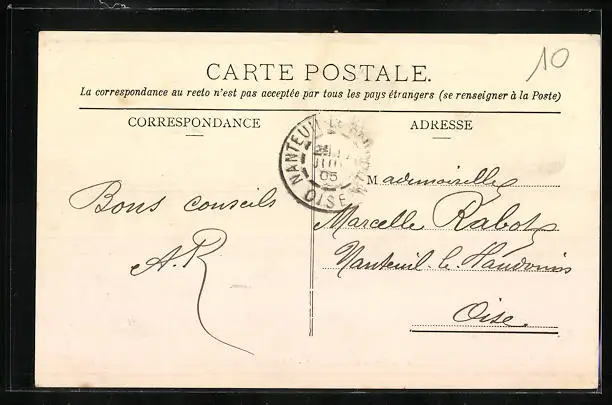 10
CARTE POSTALE.
La correspondance au recto n'est pas acceptée par tous les pays étrangers (se renseigner à la Poste)
CORRESPONDANCE
ADRESSE
NANTEUIL-LE-HAUDOUIN
05
OISE
Mademoiselle
Bons conseils
Marcelle Rabot
A.R
Nanteuil-le-Haudouin
Oise